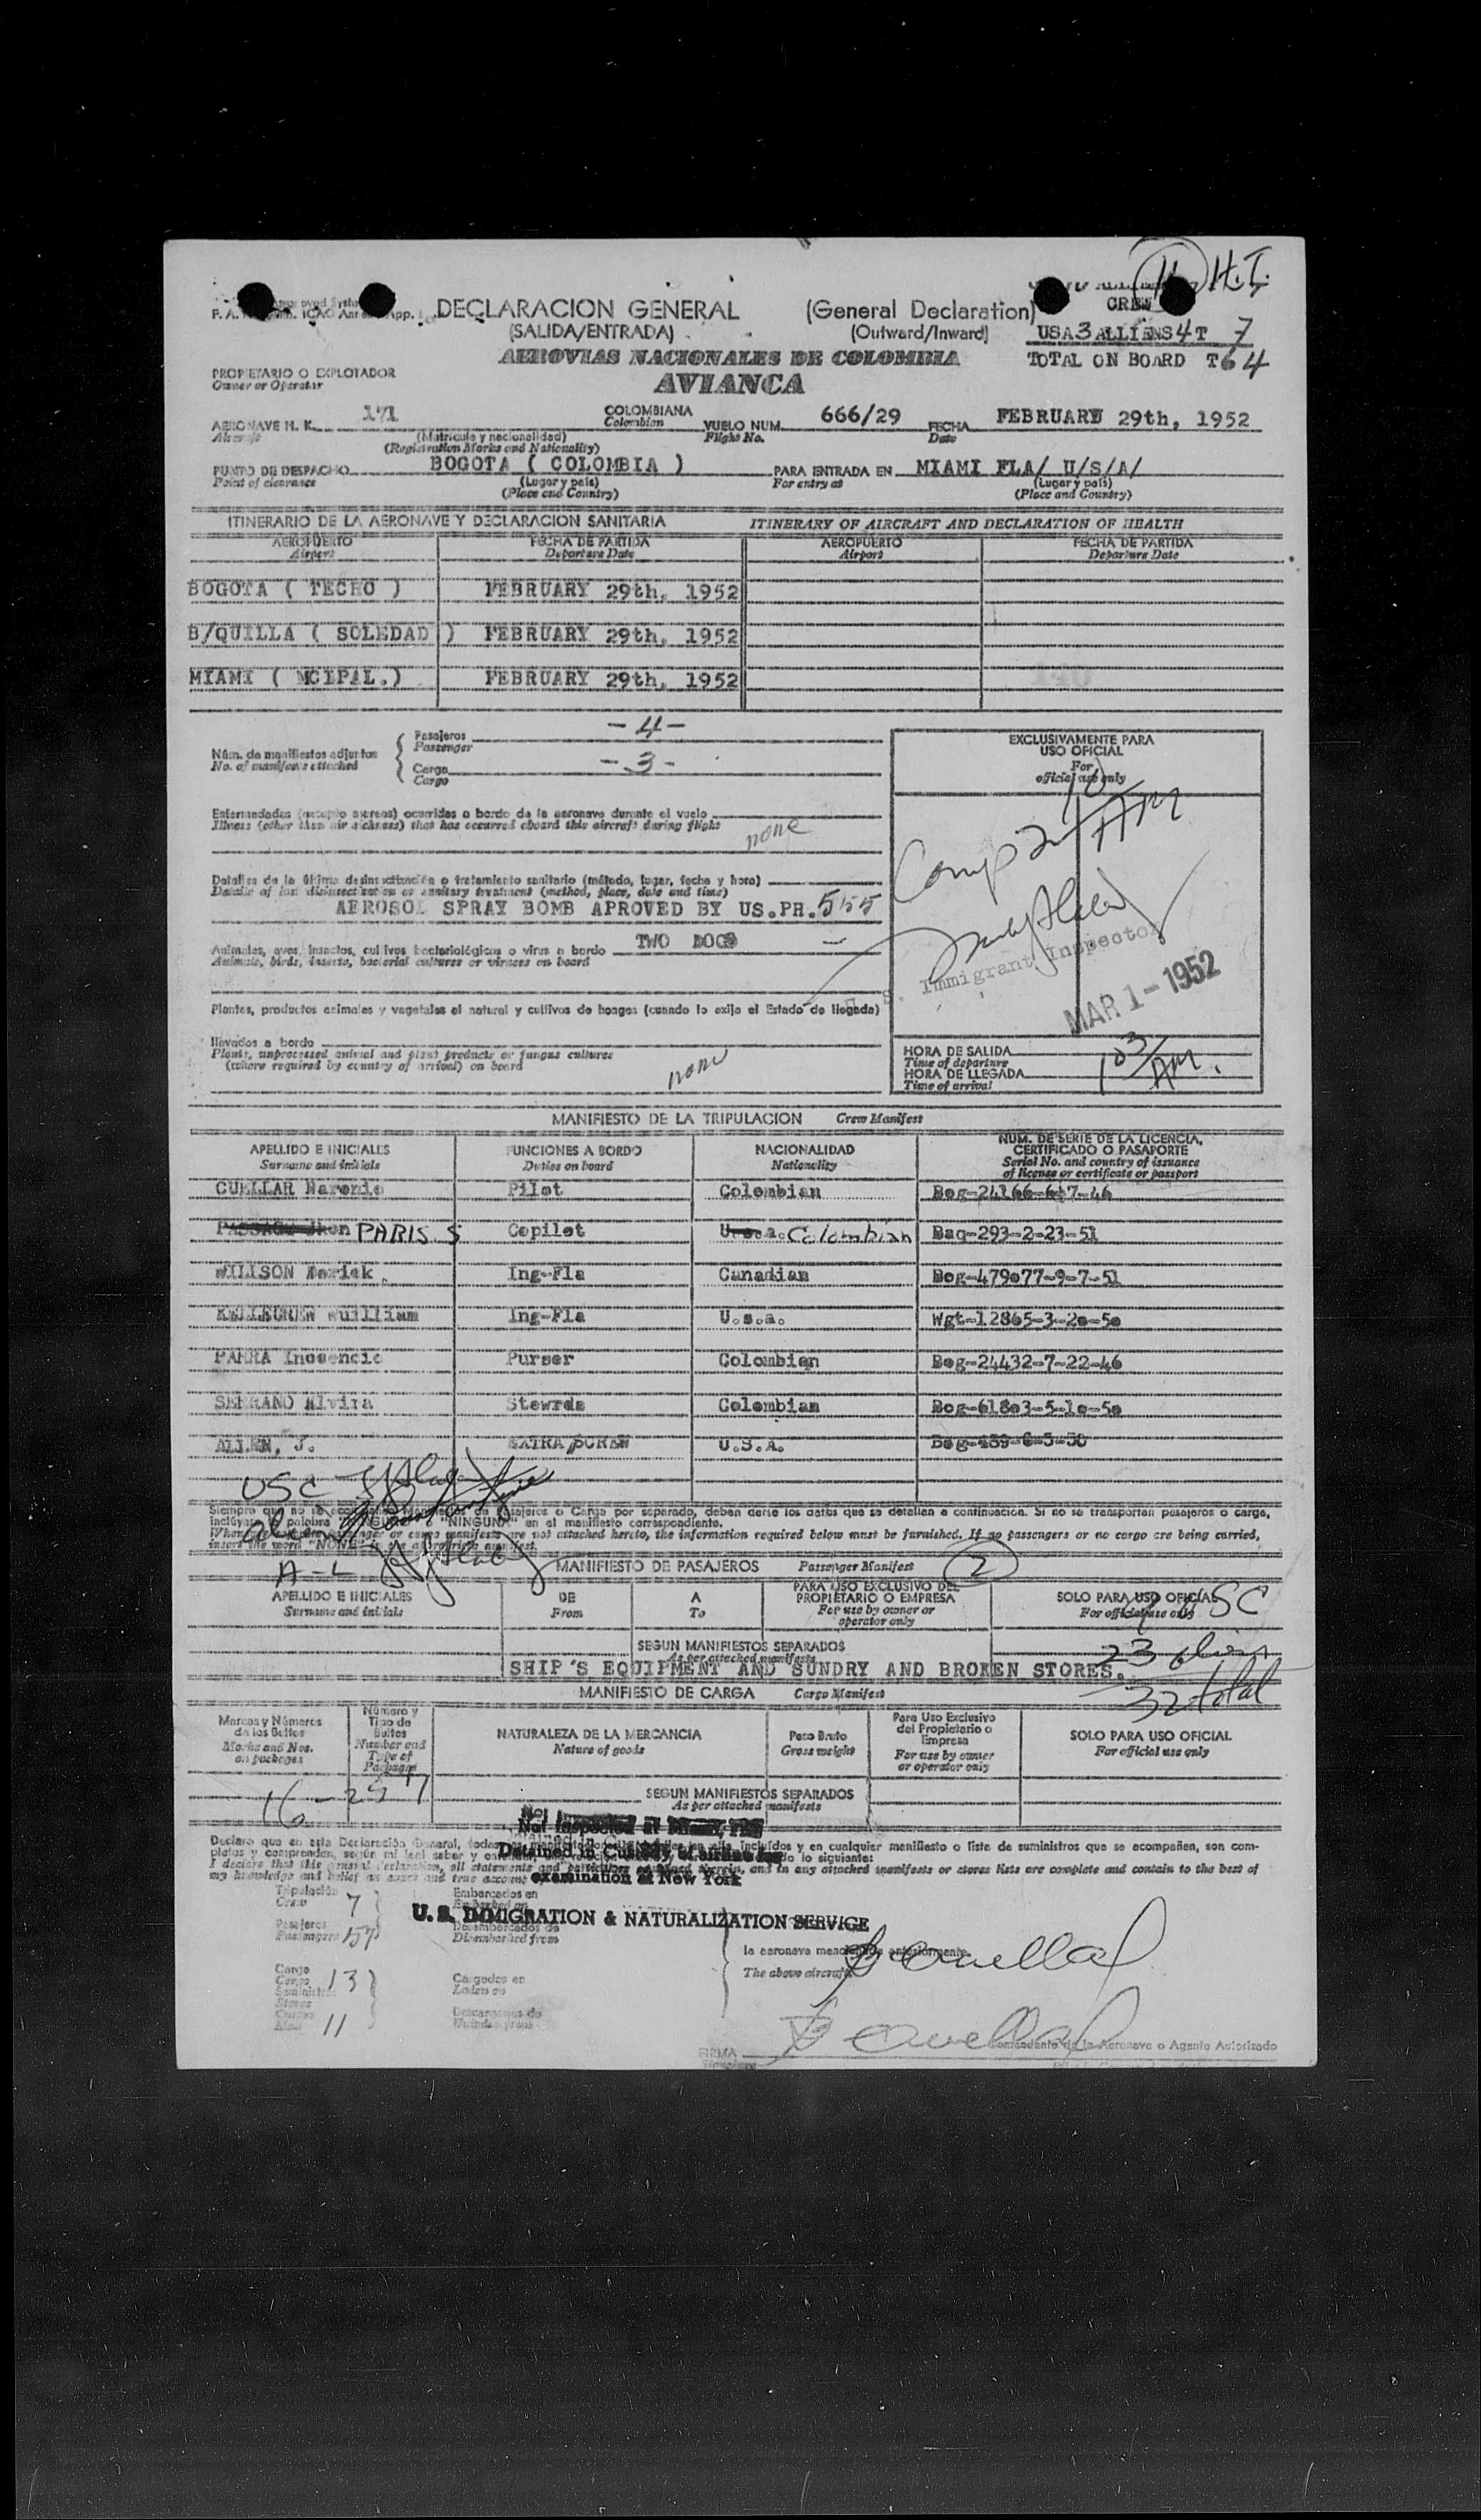 11 H.I.
DECLARACION GENERAL (General Declaration)
CREW
(SALIDA/ENTRADA) (Outward/Inward)
USA 3 ALLIENS 4 T 7
AEROVIAS NACIONALES DE COLOMBIA
TOTAL ON BOARD T 64
PROPIETARIO O EXPLOTADOR
Owner or Operator
AVIANCA
AERONAVE H. K. 171 COLOMBIANA VUELO NUM. 666/29 FECHA FEBRUARY 29th, 1952
Aircraft (Matricula y nacionalidad) Colombian Flight No. Date
(Registration Marks and Nationality)
PUNTO DE DESPACHO BOGOTA ( COLOMBIA ) PARA ENTRADA EN MIAMI FLA/ U/S/A/
Point of clearance (Lugar y país) For entry at (Lugar y país)
(Place and Country) (Place and Country)
ITINERARIO DE LA AERONAVE Y DECLARACION SANITARIA ITINERARY OF AIRCRAFT AND DECLARATION OF HEALTH
AEROPUERTO FECHA DE PARTIDA AEROPUERTO FECHA DE PARTIDA
Airport Departure Date Airport Departure Date
BOGOTA ( TECHO ) FEBRUARY 29th, 1952
B/QUILLA ( SOLEDAD ) FEBRUARY 29th, 1952
MIAMI ( MCIPAL.) FEBRUARY 29th, 1952
Núm. de manifiestos adjuntos
No. of manifests attached
Pasajeros -4-
Passenger
Carga -3-
Cargo
EXCLUSIVAMENTE PARA
USO OFICIAL
For
official use only
Enfermedades (excepto mareos) ocurridas a bordo de la aeronave durante el vuelo
Illness (other than air sickness) that has occurred aboard this aircraft during flight
none
Detalles de la última desinsectización o tratamiento sanitario (método, lugar, fecha y hora)
Details of last disinsectization or sanitary treatment (method, place, date and time)
AEROSOL SPRAY BOMB APROVED BY US.PH. 555
Animales, aves, insectos, cultivos bacteriológicos o virus a bordo TWO DOGS
Animals, birds, insects, bacterial cultures or viruses on board
Immigrant Inspector
MAR 1 - 1952
Plantas, productos animales y vegetales al natural y cultivos de hongos (cuando lo exija el Estado de llegada)
llevados a bordo
Plants, unprocessed animal and plant products or fungus cultures
(where required by country of arrival) on board
none
HORA DE SALIDA
Time of departure
HORA DE LLEGADA
Time of arrival
103 AM.
MANIFIESTO DE LA TRIPULACION Crew Manifest
APELLIDO E INICIALES FUNCIONES A BORDO NACIONALIDAD NUM. DE SERIE DE LA LICENCIA, CERTIFICADO O PASAPORTE
Surname and initials Duties on board Nationality Serial No. and country of issuance of license or certificate or passport
CUELLAR Pilot Colombian Bog-24166-
PARIS S Copilot Colombian Baq-293-2-23-51
WILLSON Derick Ing-Fla Canadian Bog-479077-9-7-51
Ing-Fla U.s.a. Wgt-12865-3-2o-5o
PARRA Inocencio Purser Colombian Bog-24432-7-22-46
SERRANO Elvira Stewrds Colombian Bog-618o3-5-1o-5o
ALLEN, J. U.S.A.
USC
Alien
A-L
Siempre que no se acompañen Manifiestos de Pasajeros o Carga por separado, deben darse los datos que se detallan a continuación. Si no se transportan pasajeros o carga,
inclúyase la palabra "NINGUNO" en el manifiesto correspondiente.
Whenever passenger or cargo manifests are not attached hereto, the information required below must be furnished. If no passengers or no cargo are being carried,
insert the word "NONE" in the appropriate manifest.
MANIFIESTO DE PASAJEROS Passenger Manifest 2
APELLIDO E INICIALES DE A PARA USO EXCLUSIVO DEL PROPIETARIO O EMPRESA SOLO PARA USO OFICIAL
Surname and initials From To For use by owner or operator only For official use only
9 USC
SEGUN MANIFIESTOS SEPARADOS
As per attached manifests
23 aliens
SHIP'S EQUIPMENT AND SUNDRY AND BROKEN STORES.
32 total
MANIFIESTO DE CARGA Cargo Manifest
Marcas y Números de los Bultos
Marks and Nos. on packages
Número y Tipo de Bultos
Number and Type of Packages
NATURALEZA DE LA MERCANCIA
Nature of goods
Peso Bruto
Gross weight
Para Uso Exclusivo del Propietario o Empresa
For use by owner or operator only
SOLO PARA USO OFICIAL
For official use only
SEGUN MANIFIESTOS SEPARADOS
As per attached manifests
Not Inspected at Miami, Fla
Detained in Custody of airline for
examination at New York
U. S. IMMIGRATION & NATURALIZATION SERVICE
Declaro que en esta Declaración General, incluídos y en cualquier manifiesto o lista de suministros que se acompañen, son com-
pletos y comprenden, según mi leal saber y lo siguiente:
I declare that this general declaration, all statements and particulars contained therein, and in any attached manifests or stores lists are complete and contain to the best of
my knowledge and belief an exact and true account
Tripulación
Crew 7
Pasajeros
Passengers 57
Embarcados en
Desembarcados de
Disembarked from
la aeronave mencionada anteriormente.
The above aircraft
Carga
Cargo 13
Stores
11
Cargados en
Laden on
Descargados de
FIRMA
Signature
Comandante de la Aeronave o Agente Autorizado